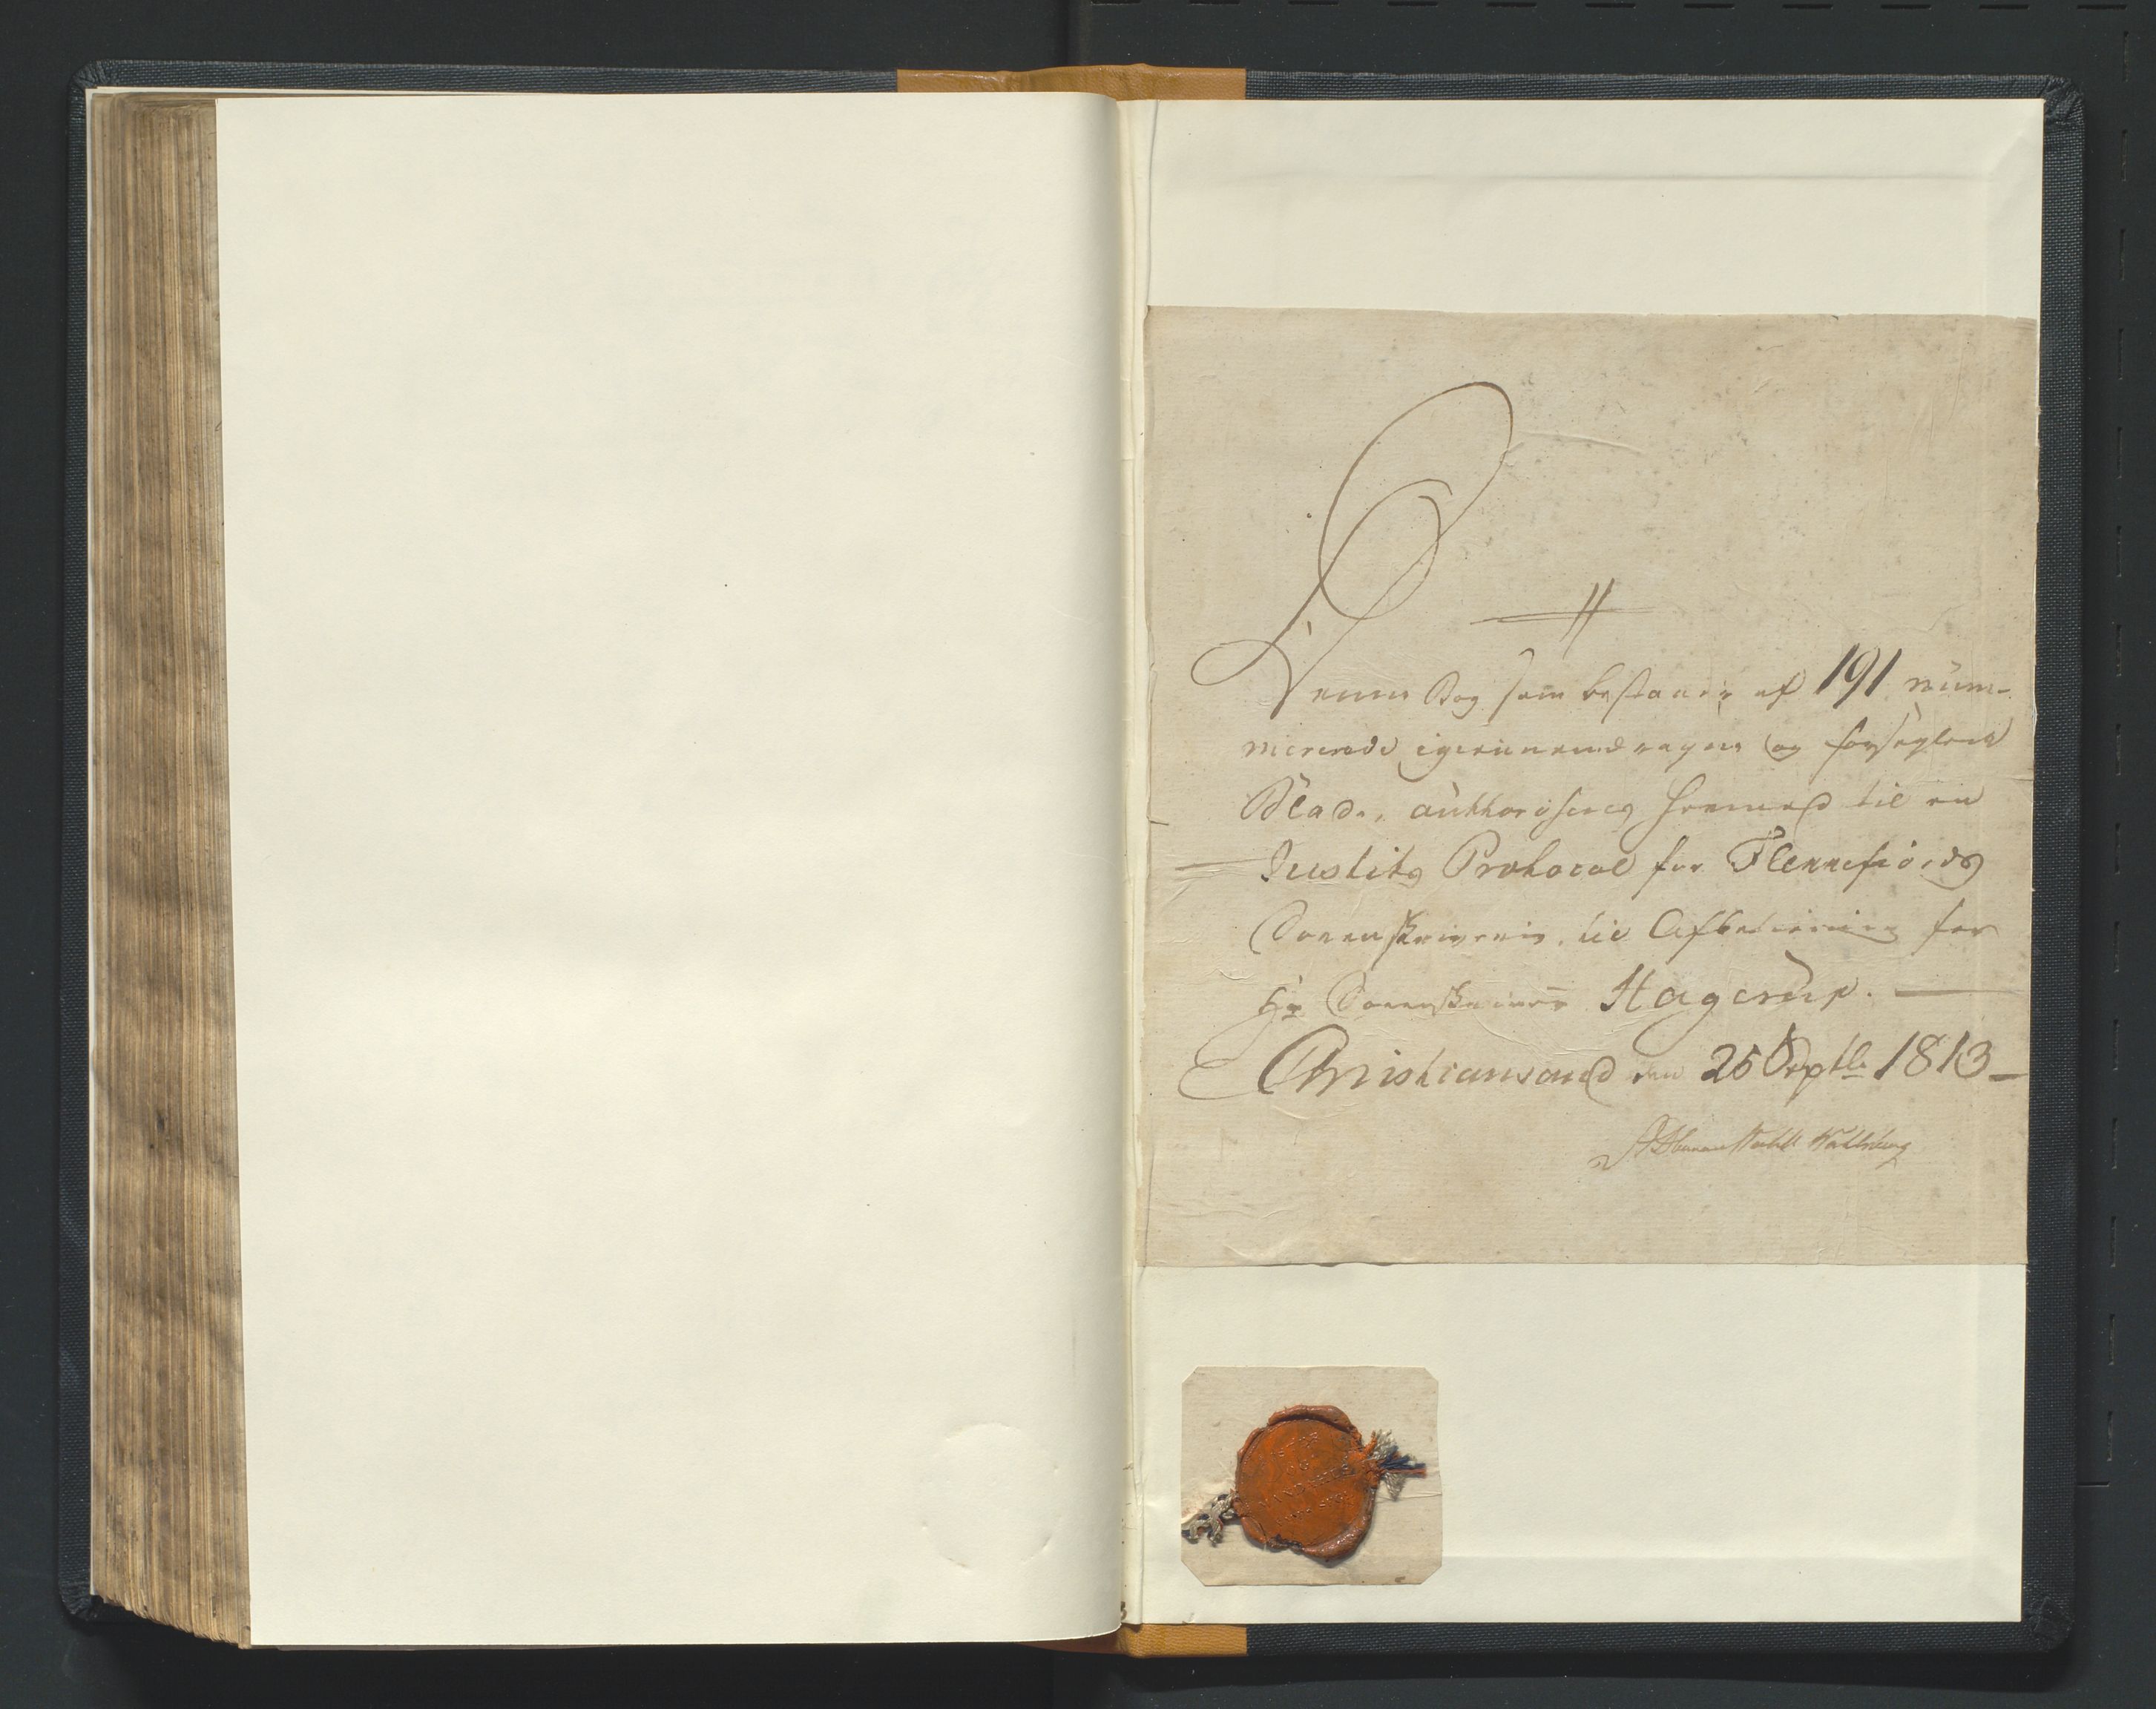 Denne Bog som bestaaer af 191 num-
mererede igiennemdragne og forseglede
Blade, authoriseres hermed til en
Justits Protocol for Flekkefiords
Sorenskriverie, til Afbetiening for
Hr Sorenskriver Hagerup.
Christiansand den 25 Septbr 1813
OG